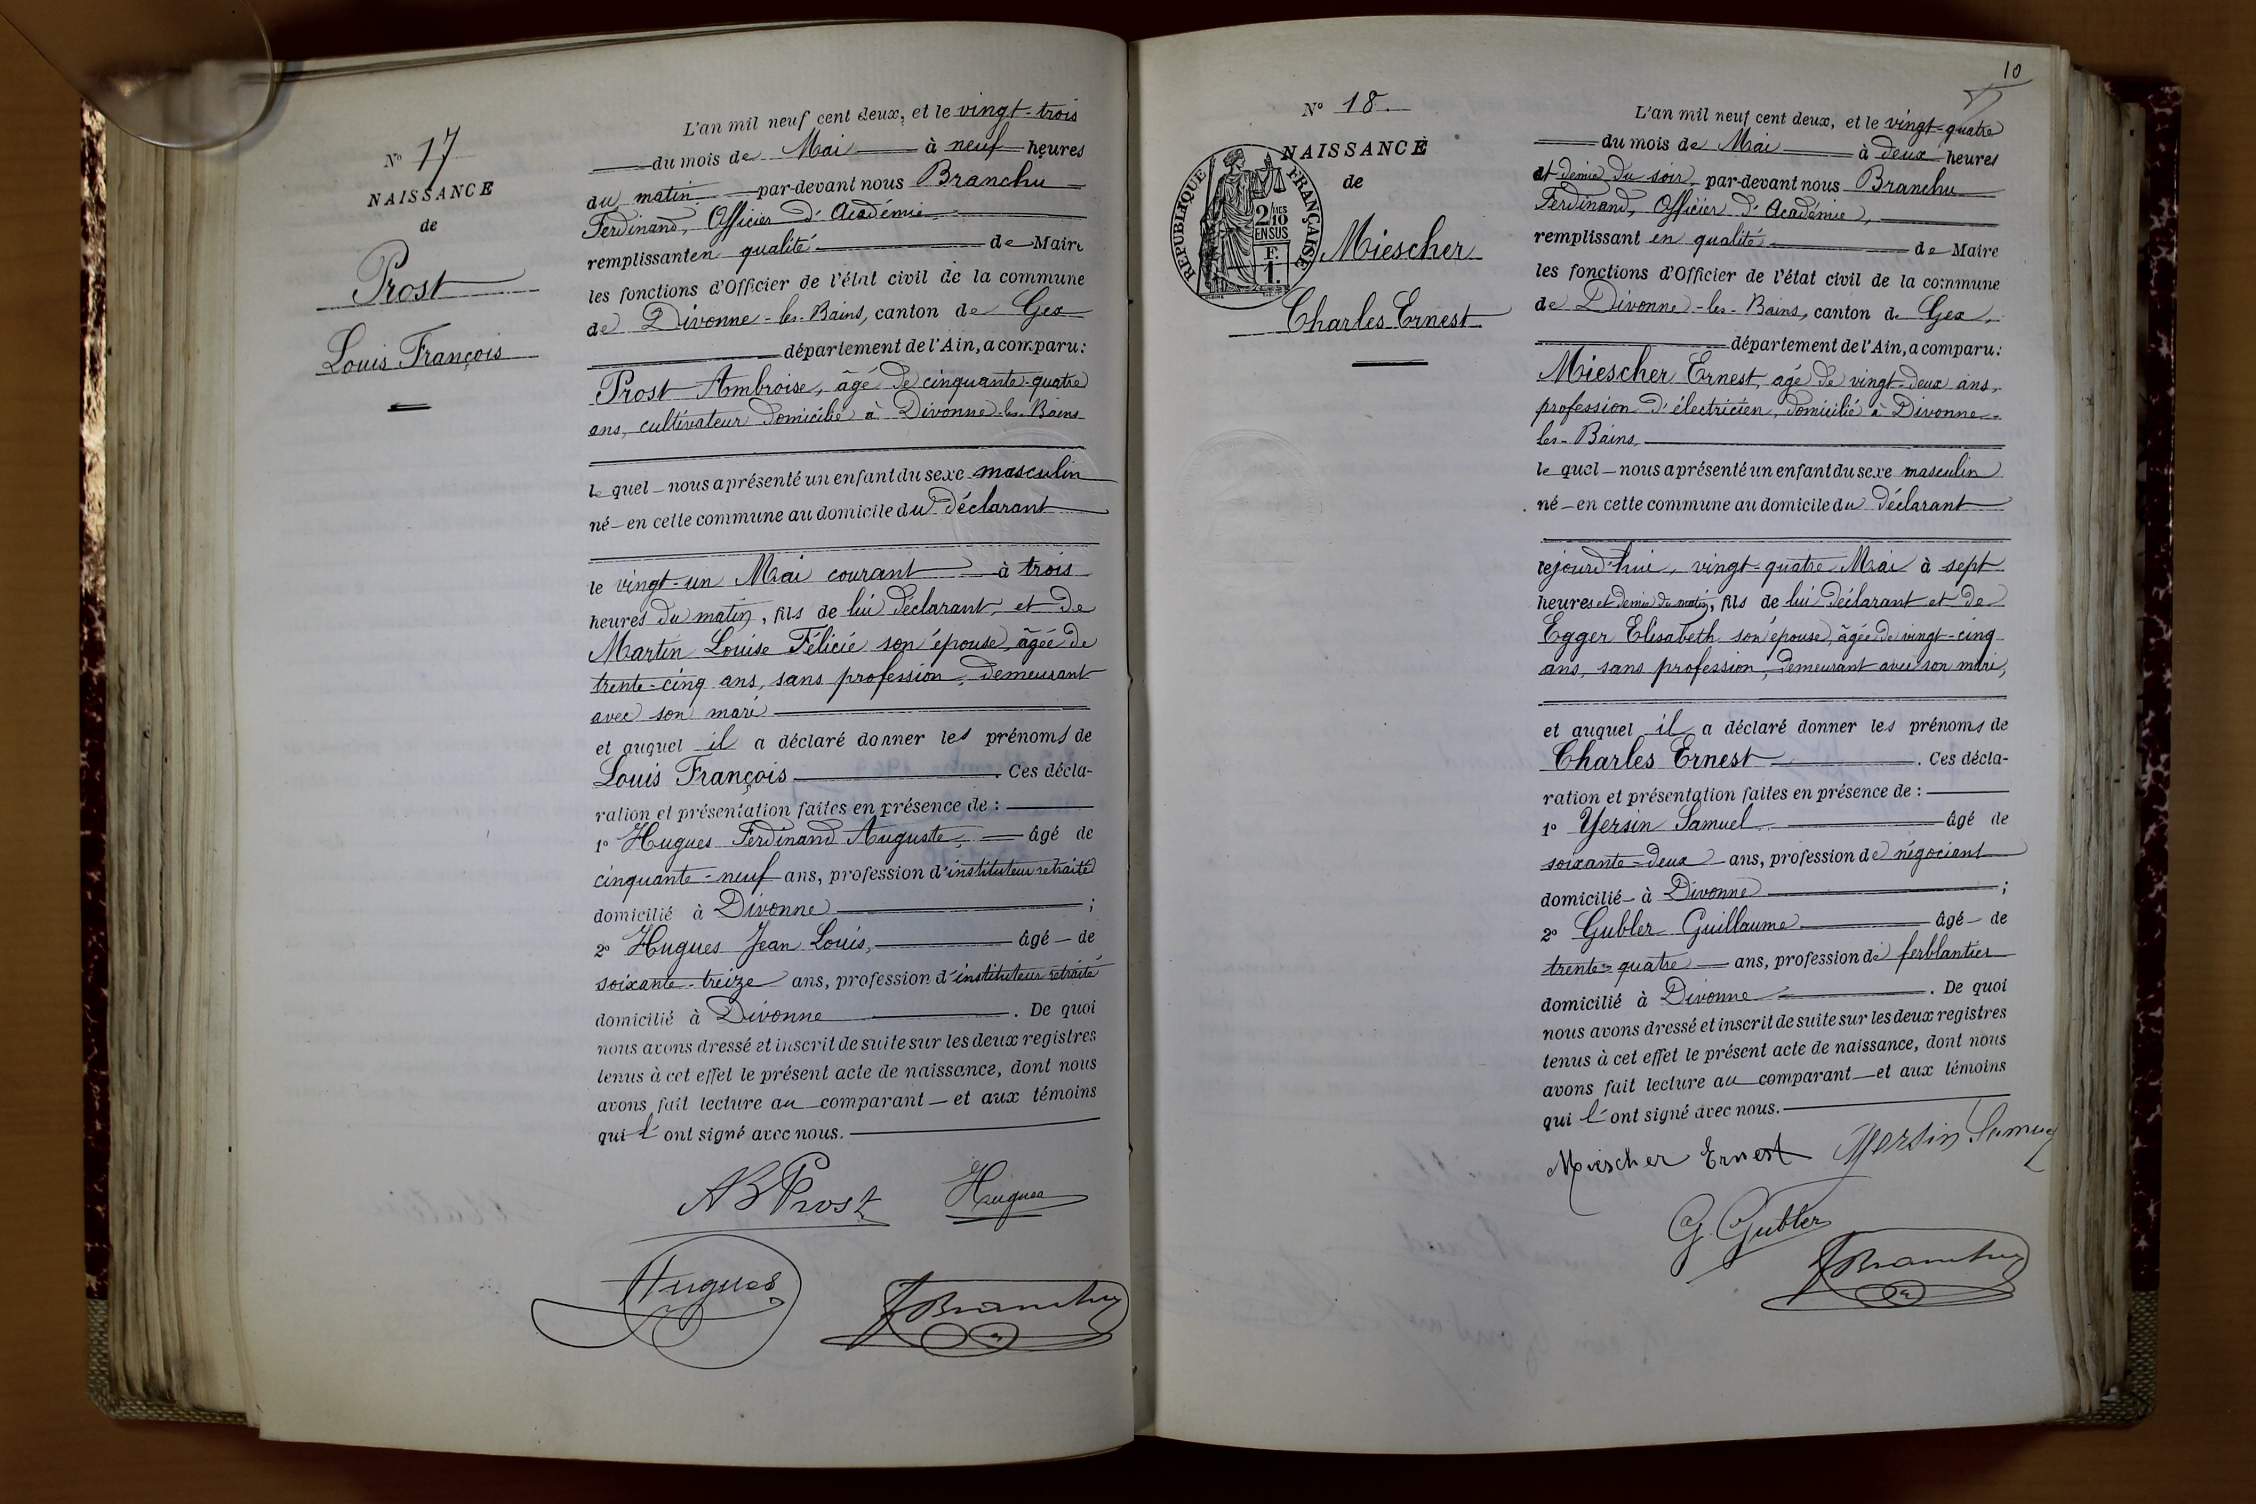 N° 17
NAISSANCE
de
Prost
Louis François
L'an mil neuf cent deux, et le vingt-trois
du mois de Mai à neuf heures
du matin par-devant nous Branchu
Ferdinand, Officier d'Académie
remplissant en qualité de Maire
les fonctions d'Officier de l'état civil de la commune
de Divonne-les-Bains, canton de Gex
département de l'Ain, a comparu:
Prost Ambroise, âgé de cinquante-quatre
ans, cultivateur domicilié à Divonne-les-Bains
le quel nous a présenté un enfant du sexe masculin
né en cette commune au domicile du déclarant
le vingt-un Mai courant à trois
heures du matin, fils de lui déclarant, et de
Martin Louise Félicie son épouse, âgée de
trente-cinq ans, sans profession, demeurant
avec son mari
et auquel il a déclaré donner les prénoms de
Louis François. Ces décla-
ration et présentation faites en présence de :
1° Hugues Ferdinand Auguste, âgé de
cinquante-neuf ans, profession d'instituteur retraité
domicilié à Divonne ;
2° Hugues Jean Louis, âgé de
soixante-treize ans, profession d'instituteur retraité
domicilié à Divonne. De quoi
nous avons dressé et inscrit de suite sur les deux registres
tenus à cet effet le présent acte de naissance, dont nous
avons fait lecture au comparant et aux témoins
qui l'ont signé avec nous.
AB Prost Hugues
Hugues Branchu
10
N° 18
NAISSANCE
de
REPUBLIQUE FRANÇAISE
2/10 EN SUS
F. 1.
Miescher
Charles Ernest
L'an mil neuf cent deux, et le vingt-quatre
du mois de Mai à deux heures
et demie du soir par-devant nous Branchu
Ferdinand, Officier d'Académie,
remplissant en qualité de Maire
les fonctions d'Officier de l'état civil de la commune
de Divonne-les-Bains, canton de Gex,
département de l'Ain, a comparu:
Miescher Ernest, agé de vingt-deux ans,
profession d'électricien, domicilié à Divonne-
les-Bains,
le quel nous a présenté un enfant du sexe masculin
né en cette commune au domicile du déclarant
cejourd'hui, vingt-quatre Mai à sept
heures et demie du matin, fils de lui déclarant et de
Egger Elisabeth son épouse, âgée de vingt-cinq
ans, sans profession, demeurant avec son mari,
et auquel il a déclaré donner les prénoms de
Charles Ernest. Ces décla-
ration et présentation faites en présence de :
1° Yersin Samuel, âgé de
soixante-deux ans, profession de négociant
domicilié à Divonne ;
2° Gubler Guillaume âgé de
trente-quatre ans, profession de ferblantier
domicilié à Divonne. De quoi
nous avons dressé et inscrit de suite sur les deux registres
tenus à cet effet le présent acte de naissance, dont nous
avons fait lecture au comparant et aux témoins
qui l'ont signé avec nous.
Miescher Ernest Yersin Samuel
G. Gubler
Branchu